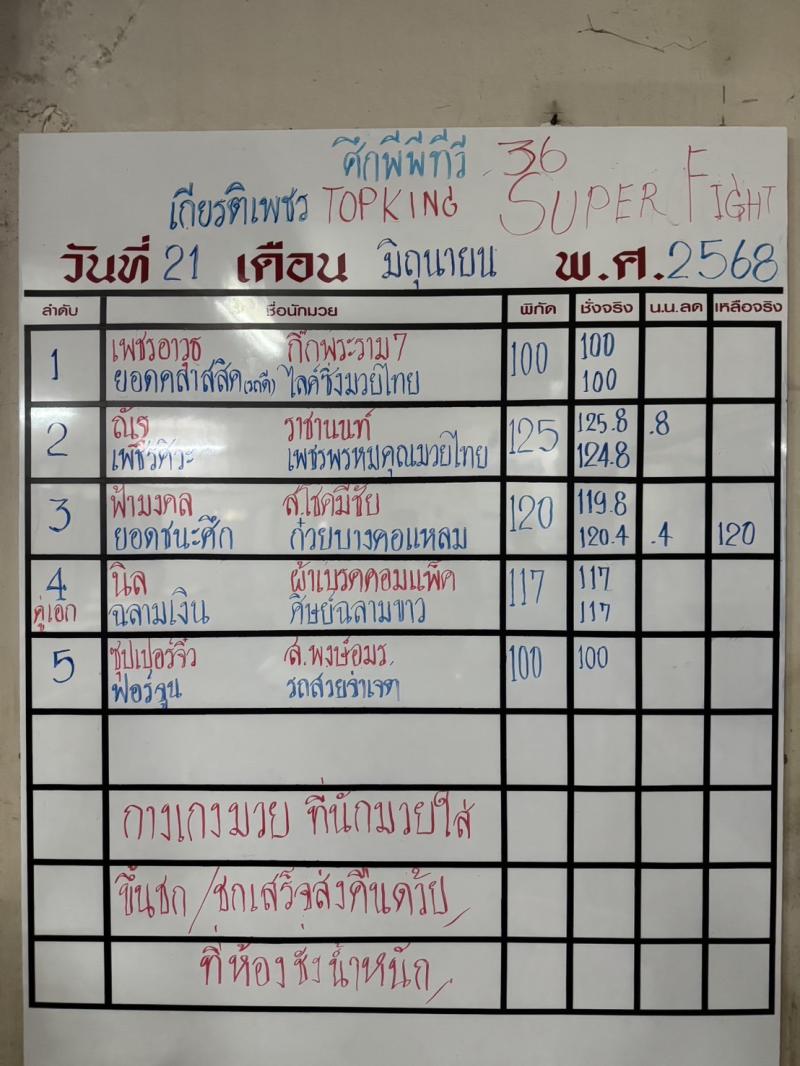 ศึกพีพีทีวี 36
เกียรติเพชร TOPKING SUPER FIGHT
วันที่ 21 เดือน มิถุนายน พ.ศ. 2568
ลำดับ ชื่อนักมวย พิกัด ชั่งจริง น.น.ลด เหลือจริง
1 เพชรอาวุธ กิ๊กพระราม7 100 100
ยอดคลาสสิค ไลค์ซิ่งมวยไทย 100
2 ณัฐ ราชานนท์ 125 125.8 .8
เพชรศิวะ เพชรพรหมคุณมวยไทย 124.8
3 ฟ้ามงคล ส.โชคมีชัย 120 119.8
ยอดชนะศึก ก๋วยบางคอแหลม 120.4 .4 120
4 นิล ผ้าเบรคคอมแพ็ค 117 117
คู่เอก ฉลามเงิน ศิษย์ฉลามขาว 117
5 ซุปเปอร์จิ๋ว ส.พงษ์อมร 100 100
ฟอร์จูน รถสวยร่าเจต
กางเกงมวย ที่นักมวยใส่
ขึ้นชก / ชกเสร็จส่งคืนด้วย
ที่ห้องชั่งน้ำหนัก